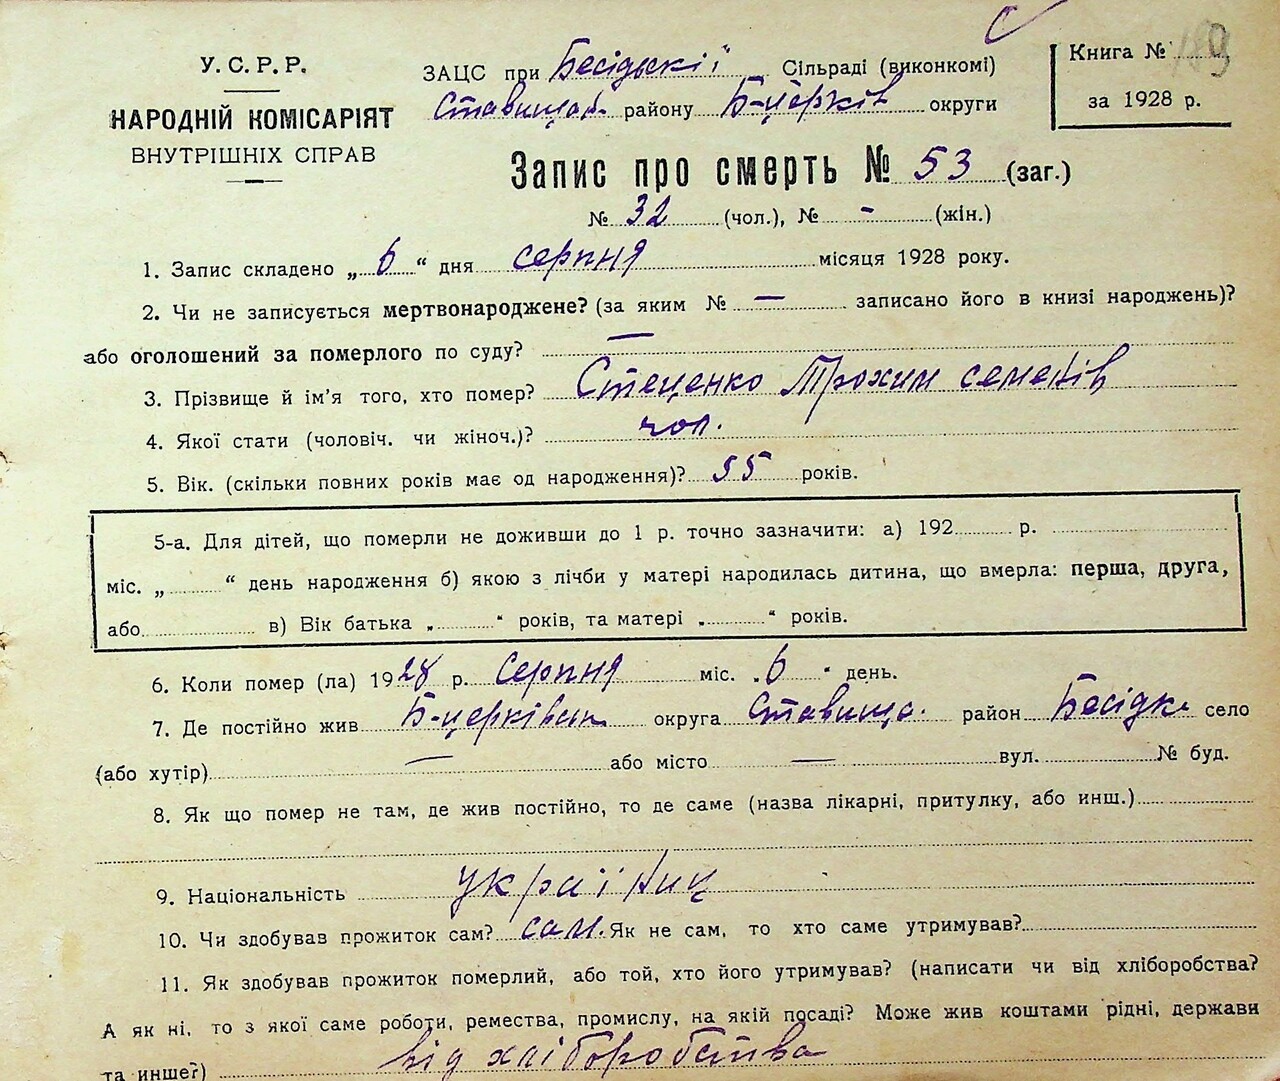 У. С. Р. Р.
НАРОДНІЙ КОМІСАРІЯТ
ВНУТРІШНІХ СПРАВ
ЗАЦС при Бесідськії Сільраді (виконкомі)
Ставищан. району Б-церків округи
Книга №
за 1928 р.
Запис про смерть № 53 (заг.)
№ 32 (чол.), № - (жін.)
1. Запис складено „ 6 “ дня серпня місяця 1928 року.
2. Чи не записується мертвонароджене? (за яким № — записано його в книзі народжень)?
або оголошений за померлого по суду? —
3. Прізвище й ім'я того, хто помер? Стеценко Трохим семенів
4. Якої стати (чоловіч. чи жіноч.)? чол.
5. Вік. (скільки повних років має од народження)? 55 років.
5-а. Для дітей, що померли не доживши до 1 р. точно зазначити: а) 192 р.
міс. „ “ день народження б) якою з лічби у матері народилась дитина, що вмерла: перша, друга,
або в) Вік батька „ “ років, та матері „ “ років.
6. Коли помер (ла) 1928 р. серпня міс. „6“ день.
7. Де постійно жив Б-церківськ округа Ставищ. район Бесідк село
(або хутір) — або місто — вул. № буд.
8. Як що помер не там, де жив постійно, то де саме (назва лікарні, притулку, або инш.)
9. Національність українц
10. Чи здобував прожиток сам? сам. Як не сам, то хто саме утримував?
11. Як здобував прожиток померлий, або той, хто його утримував? (написати чи від хліборобства?
А як ні, то з якої саме роботи, ремества, промислу, на якій посаді? Може жив коштами рідні, держави
та инше?) від хліборобства